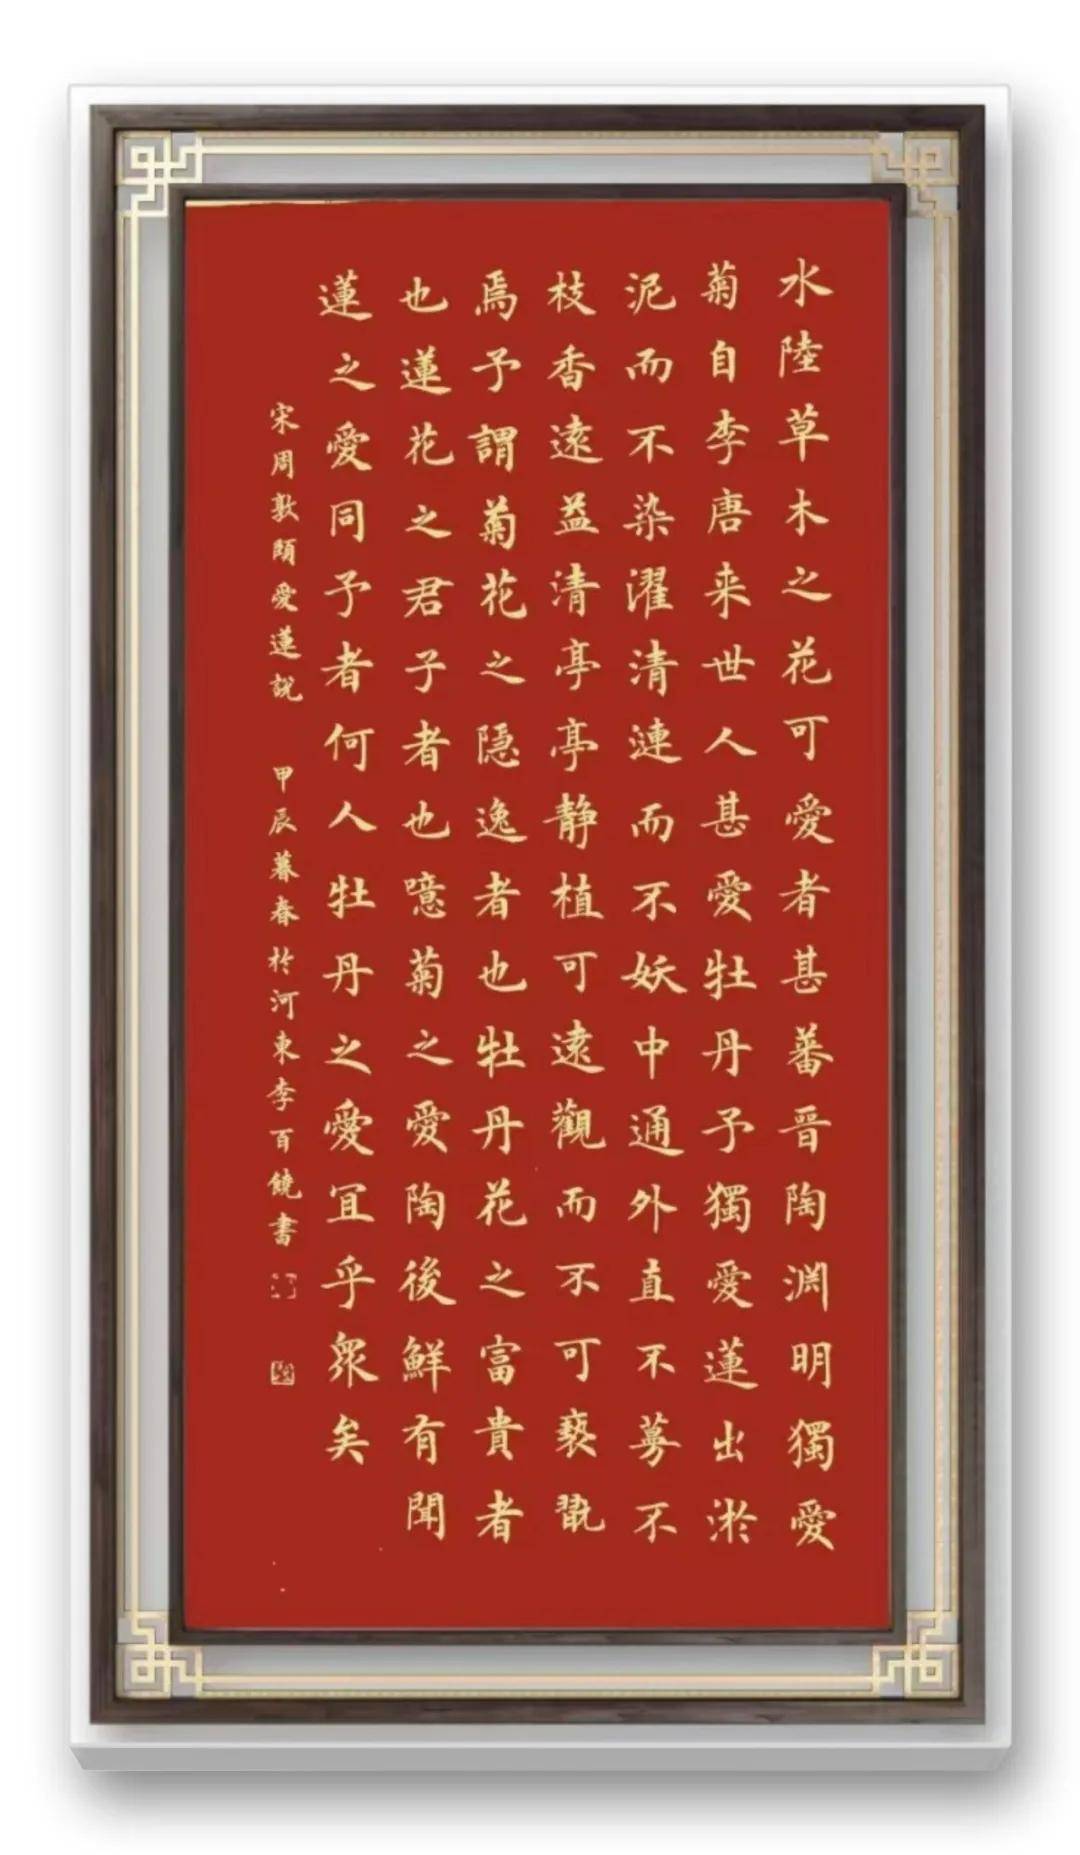 水陸草木之花可愛者甚蕃晋陶渊明獨愛
菊自李唐来世人甚愛牡丹予獨愛蓮出淤
泥而不染濯清漣而不妖中通外直不蔓不
枝香遠益清亭亭静植可遠觀而不可褻翫
焉予謂菊花之隠逸者也牡丹花之富貴者
也蓮花之君子者也噫菊之愛陶後鮮有聞
蓮之愛同予者何人牡丹之愛宜乎眾矣
宋周敦頤愛蓮說 甲辰暮春於河東李百饒書